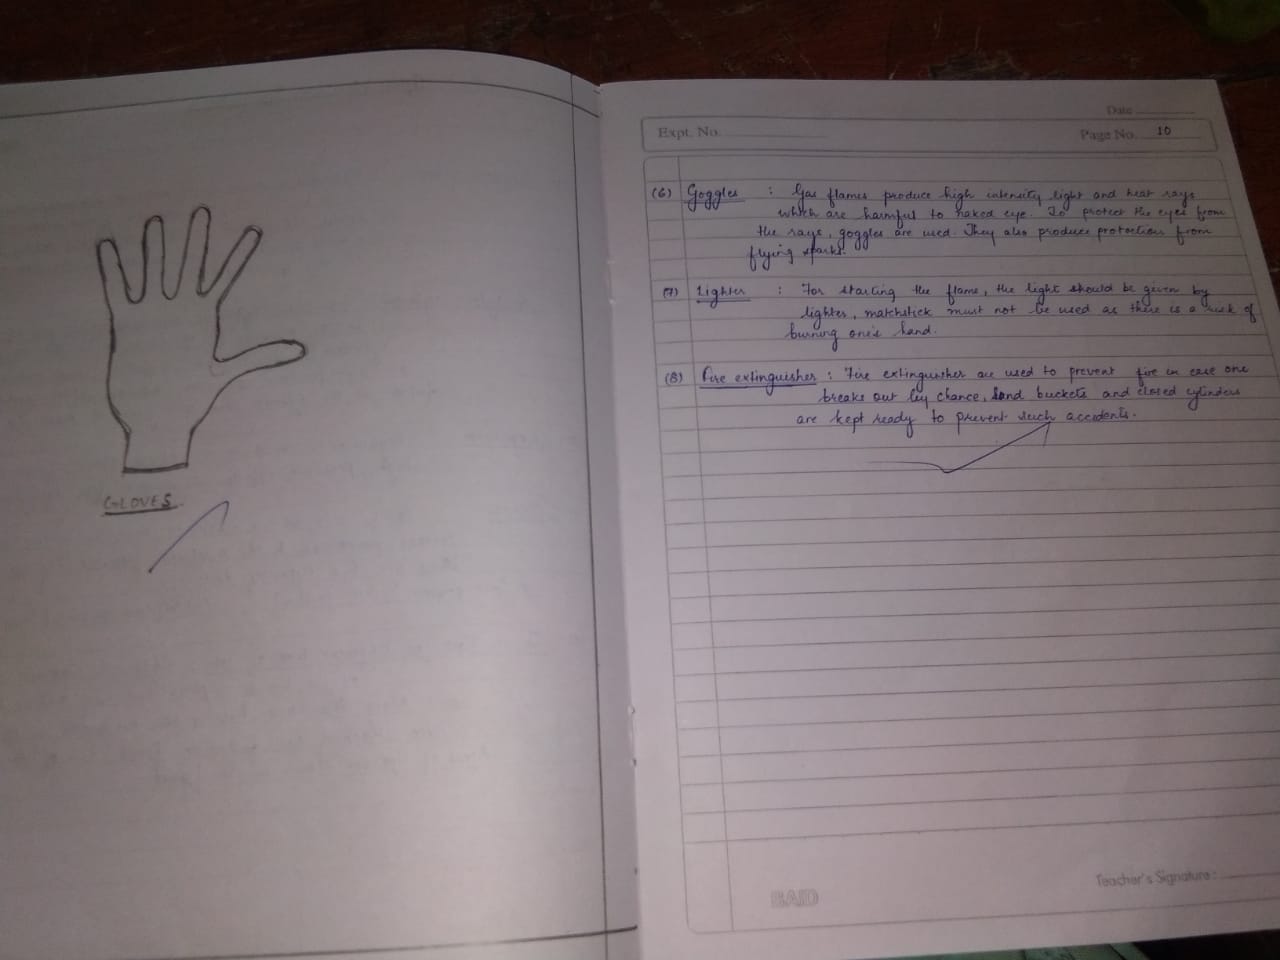 GLOVES
Date
Expt. No.
Page No. 10
(6) Goggles : Gas flames produce high intensity light and heat rays
which are harmful to naked eye. To protect the eyes from
the rays, goggles are used. They also produce protection from
flying sparks.
(7) Lighter : For starting the flame, the light should be given by
lighter, matchstick must not be used as there is a risk of
burning one's hand.
(8) Fire extinguisher : Fire extinguisher are used to prevent fire in case one
breaks out by chance, Sand buckets and closed cylinders
are kept ready to prevent such accidents.
BAID
Teacher's Signature :